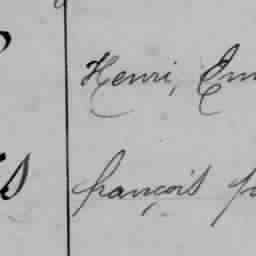 Henri, Em
françois